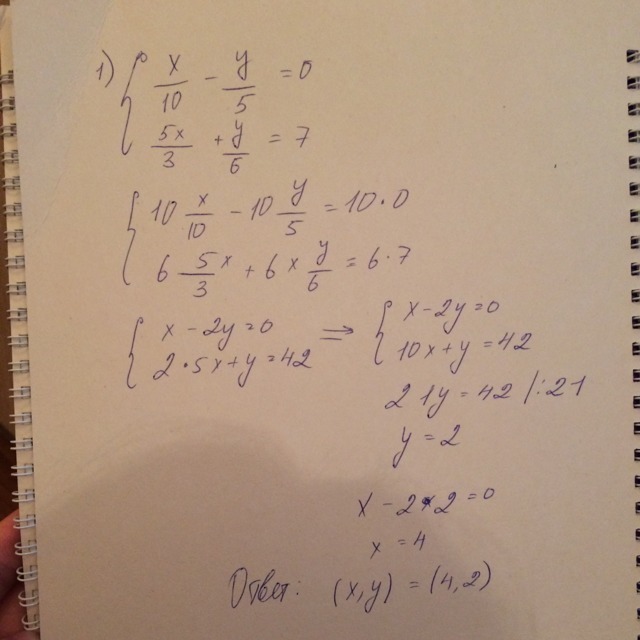 1) { x/10 - y/5 = 0
5x/3 + y/6 = 7
{ 10 x/10 - 10 y/5 = 10 • 0
6 5/3 x + 6 × y/6 = 6 • 7
{ x - 2y = 0
2 • 5x + y = 42
⇒ { x - 2y = 0
10x + y = 42
21y = 42 /:21
y = 2
x - 2 × 2 = 0
x = 4
Ответ: (x,y) = (4,2)